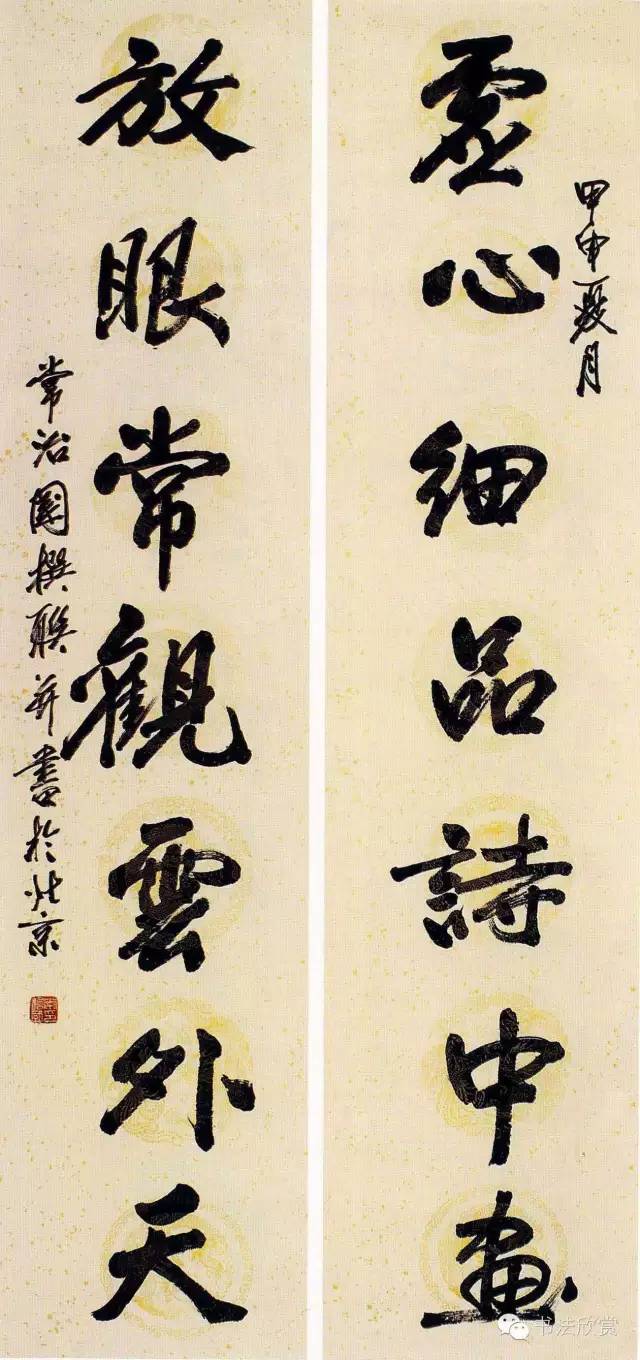 甲申夏月
虚心细品詩中畫
放眼常觀雲外天
常治國撰联并書於北京
书法欣赏